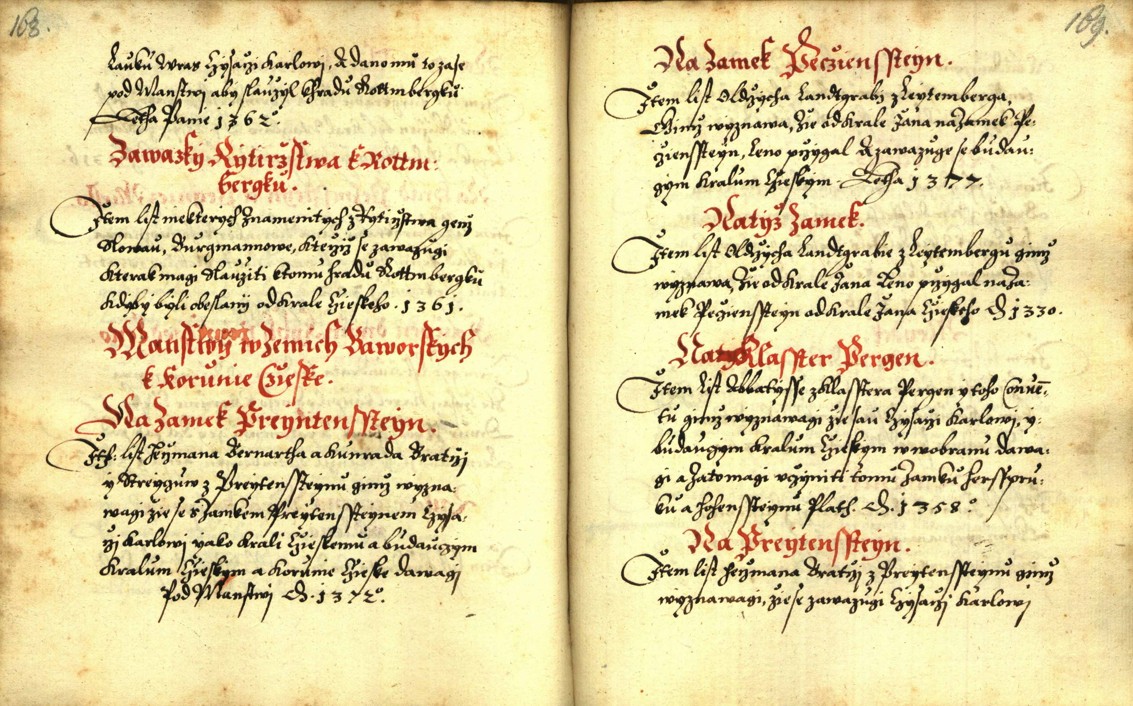 168.
laukú wras Cysarzi Karlowi, A dano mu to zase
pod Manstwi aby slauzyl k hradu Rottmbergku
Letha Panie 1362°.
Zawazky Rytirzstwa k Rottm:
bergku.
Item list niekterych znamenitych z Rytirzstwa genz
slowau, Burgmannowe, kterziz se zawazugi
kterak magi slauziti k tomu hradu Rottmbergku
kdyby byli obeslani od krale Czieskeho. 1361.
Manstwy w Zemich Baworskych
k korunie Czieske.
Na Zamek Preyntenssteyn.
Ith: list Heymana Bernartha a Kunrada Bratrzi
y Streyguw z Preytenssteynu gimz wyzna-
wagi zie se s Zamkem Preytenssteynem Cysa-
rzi Karlowi yako krali Czieskemu a budauczym
Kralum Czieskym a korunie Czieske dawagi
Pod Manstwi A. 1372°.
169.
Na Zamek Pecziensteyn.
Item list Oldrzycha Landtgrabi z Leytemberga,
Gimz wyznawa, zie od krale Jana na Zamek Pe-
cziensteyn, leno przygal A zawazuge se budau:
cym Kralum Czieskym. Letha 1377.
Natyz Zamek.
Item list Oldrzycha Landtgrabie z Leytembergu gimz
wyznawa, zie od krale Jana Leno przygal na Za-
mek Pecziensteyn od krale Jana Czieskeho A 1330.
Na Klasster Pergen.
Item List Abbatysse z Klasstera Pergen y toho Conuen-
tu gimz wyznawagi zie sau Cysarzi Karlowi, y
budaucym Kralum Czieskym w wobranu dawa-
gi a zatomagi uczyniti tomu Zamku Hersspru-
ku a Hohenssteynu Plath. A. 1358°.
Na Preytenssteyn.
Item list Heymana Bratrzi z Preytenssteynu gimz
wyznawagi, zie se zawazugi Cysarzi Karlowi